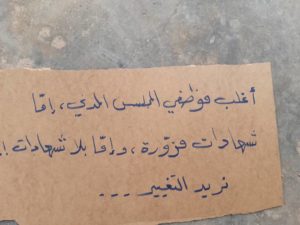 أغلب موظفي المجلس المحلي، إمّا
شهادات مزوّرة، وإمّا بلا شهادات !!
نريد التغيير ...